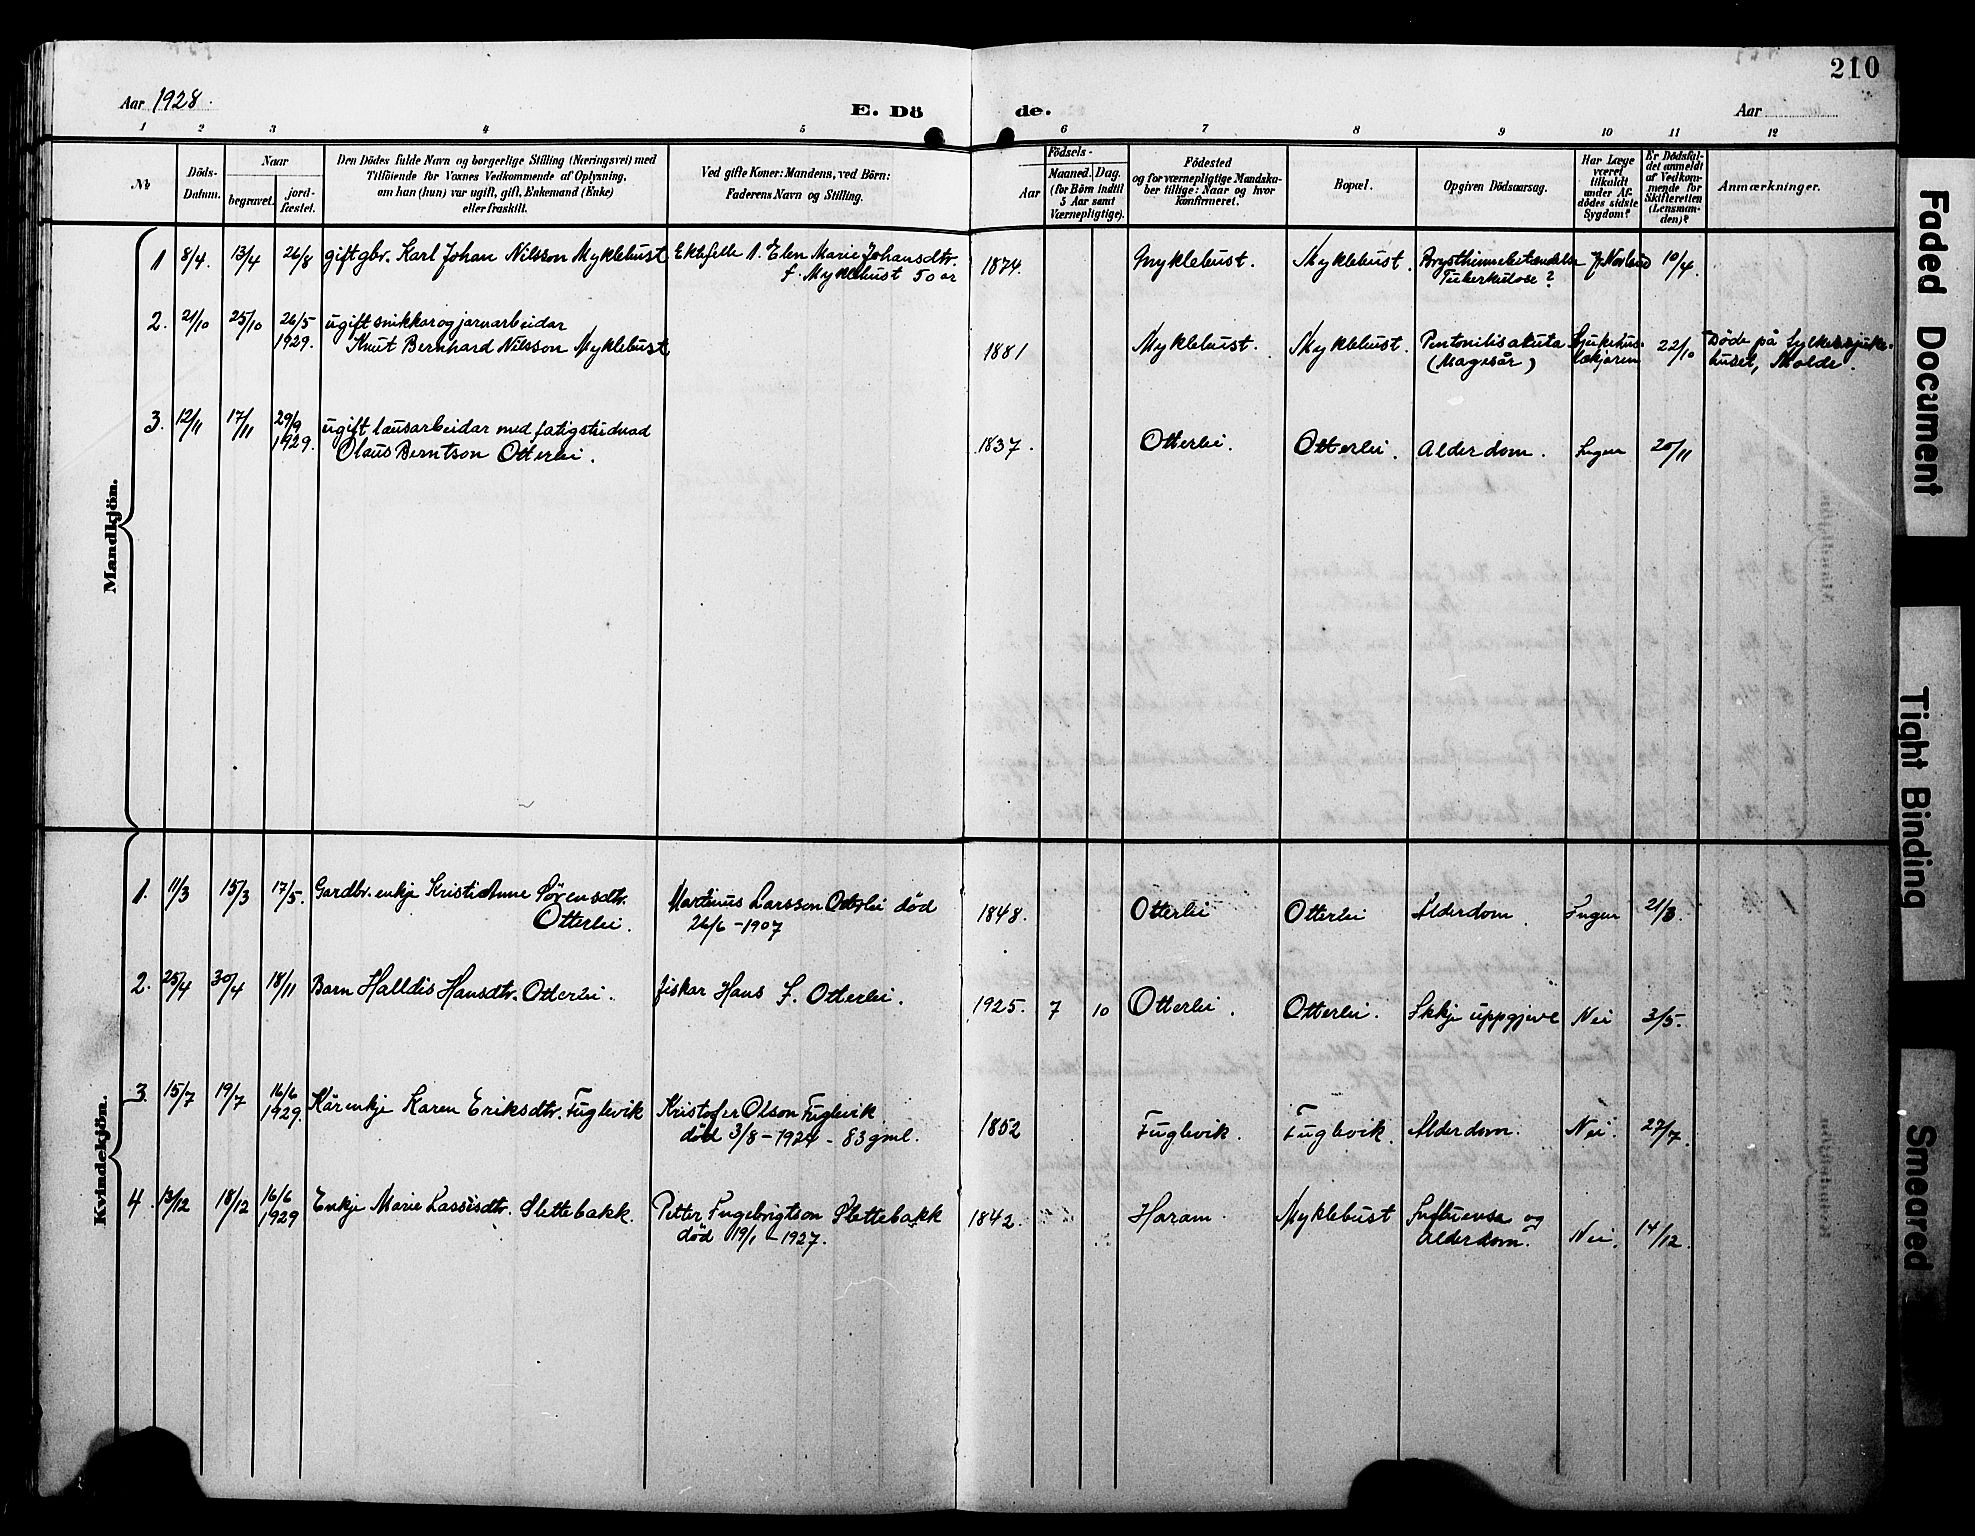 210
Aar 1928.
E. Döde.
Aar
1 2 3 4 5 6 7 8 9 10 11 12
No
Döds-Datum.
Naar
begravet.
jordfæstet.
Den Dödes fulde Navn og borgerlige Stilling (Næringsvei) med
Tilföiende for Voxnes Vedkommende af Oplysning,
om han (hun) var ugift, gift, Enkemand (Enke)
eller fraskilt.
Ved gifte Koner: Mandens, ved Börn:
Faderens Navn og Stilling.
Födsels-
Aar
Maaned. Dag.
(for Börn indtil
5 Aar samt
Værnepligtige).
Födested
og for værnepligtige Mandskaber tillige: Naar og hvor
konfirmeret.
Bopæl.
Opgiven Dödsaarsag.
Har Læge
været
tilkaldt
under Afdödes sidste
Sygdom?
Er Dödsfaldet anmeldt
af Vedkommende for
Skifteretten
(Lensmanden)?
Anmærkninger.
Mandkjön.
1 8/4. 13/4 26/8 gift gbr. Karl Johan Nilsson Myklebust Ektefelle 1. Elen Marie Johansdtr.
f. Myklebust 50 år
1874. Myklebust. Myklebust. Brysthinnebetændelse Tuberkulose? 10/4.
2. 21/10 25/10 26/5 1929. ugift snikkar og jarnarbeidar
Knut Bernhard Nilsson Myklebust
1881 Myklebust. Myklebust. (Magesår) Sjukehuslækjaren 22/10 Døde på Lyckesjukehuset, Molde.
3. 12/11 17/11 29/9 1929. ugift lausarbeidar med fatigstudnad
Olaus Berntson Otterlei.
1837. Otterlei. Otterlei. Alderdom. Ingen 20/11
Kvindekjön.
1. 11/3 15/3 17/5. Gardbr. enkje Kristianne Sörensdtr.
Otterlei.
Martinus Larsson Otterlei död
26/6 - 1907
1848. Otterlei Otterlei Alderdom. Ingen 21/3.
2. 25/4 30/4 18/11 Barn Halldis Hansdtr. Otterlei. fiskar Hans J. Otterlei.
1925. 7 10 Otterlei. Otterlei. Ikkje uppgjeve Nei 3/5.
3. 15/7 19/7 16/6 1929. Kårenkje Karen Eriksdtr. Fuglevik Kristofer Olson Fuglevik
död 3/8 - 1924 - 83 gml.
1852 Fuglevik. Fuglevik. Alderdom. Nei. 27/7.
4. 13/12 18/12 16/6 1929 Enkje Marie Lassisdtr. Slettebakk. Petter Ingebrigtson Slettebakk
död 19/1 - 1927.
1842. Haram. Myklebust Influensa og
Alderdom. Nei. 14/12.
Faded Document
Tight Binding
Smeared